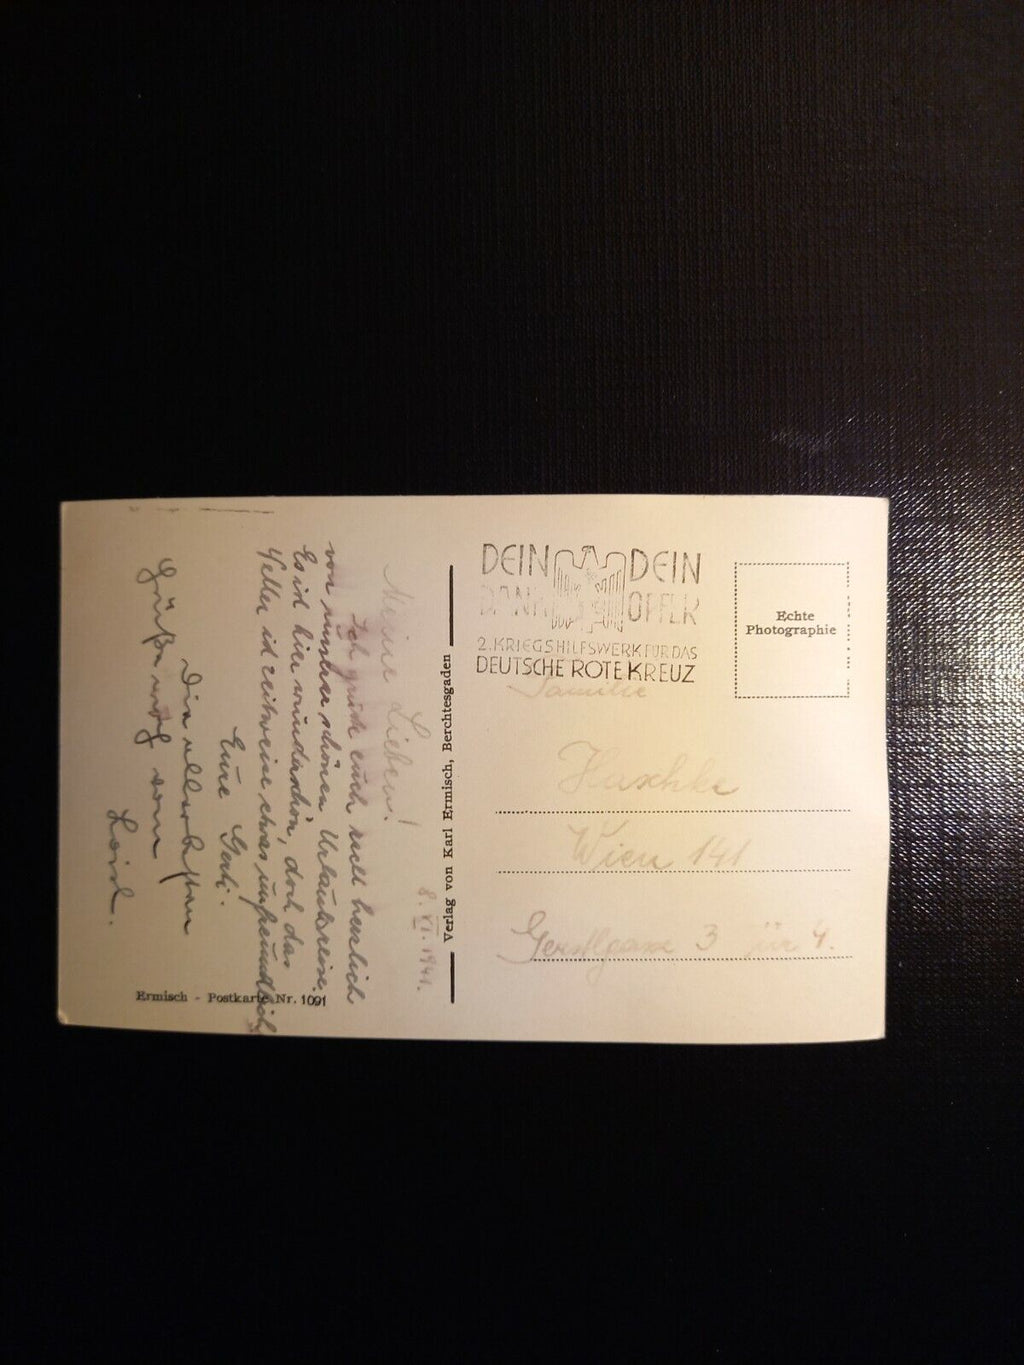 8. VI. 1941.
Meine Lieben!
Ich grüße euch recht herzlich
von unserer schönen Urlaubsreise.
Es ist hier wunderschön, doch das
Wetter ist zeitweise etwas unfreundlich
Eure Gerti.
Die allerbesten
Grüße noch vom
Loisl.
Ermisch - Postkarte Nr. 1091
Verlag von Karl Ermisch, Berchtesgaden
DEIN DEIN
DANK OPFER
2. KRIEGSHILFSWERK FÜR DAS
DEUTSCHE ROTE KREUZ
Echte
Photographie
Familie
Haschke
Wien 141
Gerstlgasse 3 Tür 4.